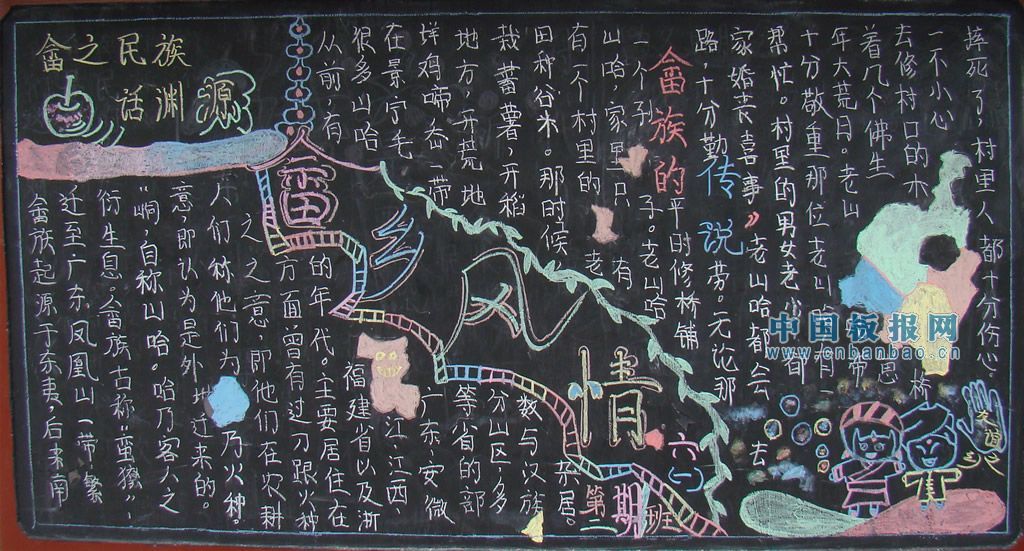 畲之民族
话渊源
畲乡风情
畲族起源于东夷,后来南
迁至广东凤凰山一带,繁
衍生息。畲族古称“蛮獠”、
“峒”,自称山哈。哈乃客人之
意,即认为是外地迁来的。
人们称他们为 乃火种。
之之意,即他们在农耕
方面曾有过刀跟火种
的年代。主要居住在
福建省以及浙
江、江西、
广东、安微
等省的部
分山区,多
数与汉族
杂居。
畲族的传说
从前,有
很多山哈
在景宁毛
垟鸡啼岙一带
地方,开荒地
栽蕃薯,开稻
田种谷米。那时候
有一个村里的老
山哈,家里只有
一个子子。老山哈
平时修桥铺
路,十分勤劳。无论那
家婚丧喜事,老山哈都会去
帮忙。村里的男女老少都
十分敬重那位老山 有
年大荒日。老山 带
着几个佛生
去修村口的木桥
一不小心
摔死了,村里人都十分伤心。
第二期
六(一)班
中国板报网
www.cnbanbao.cn